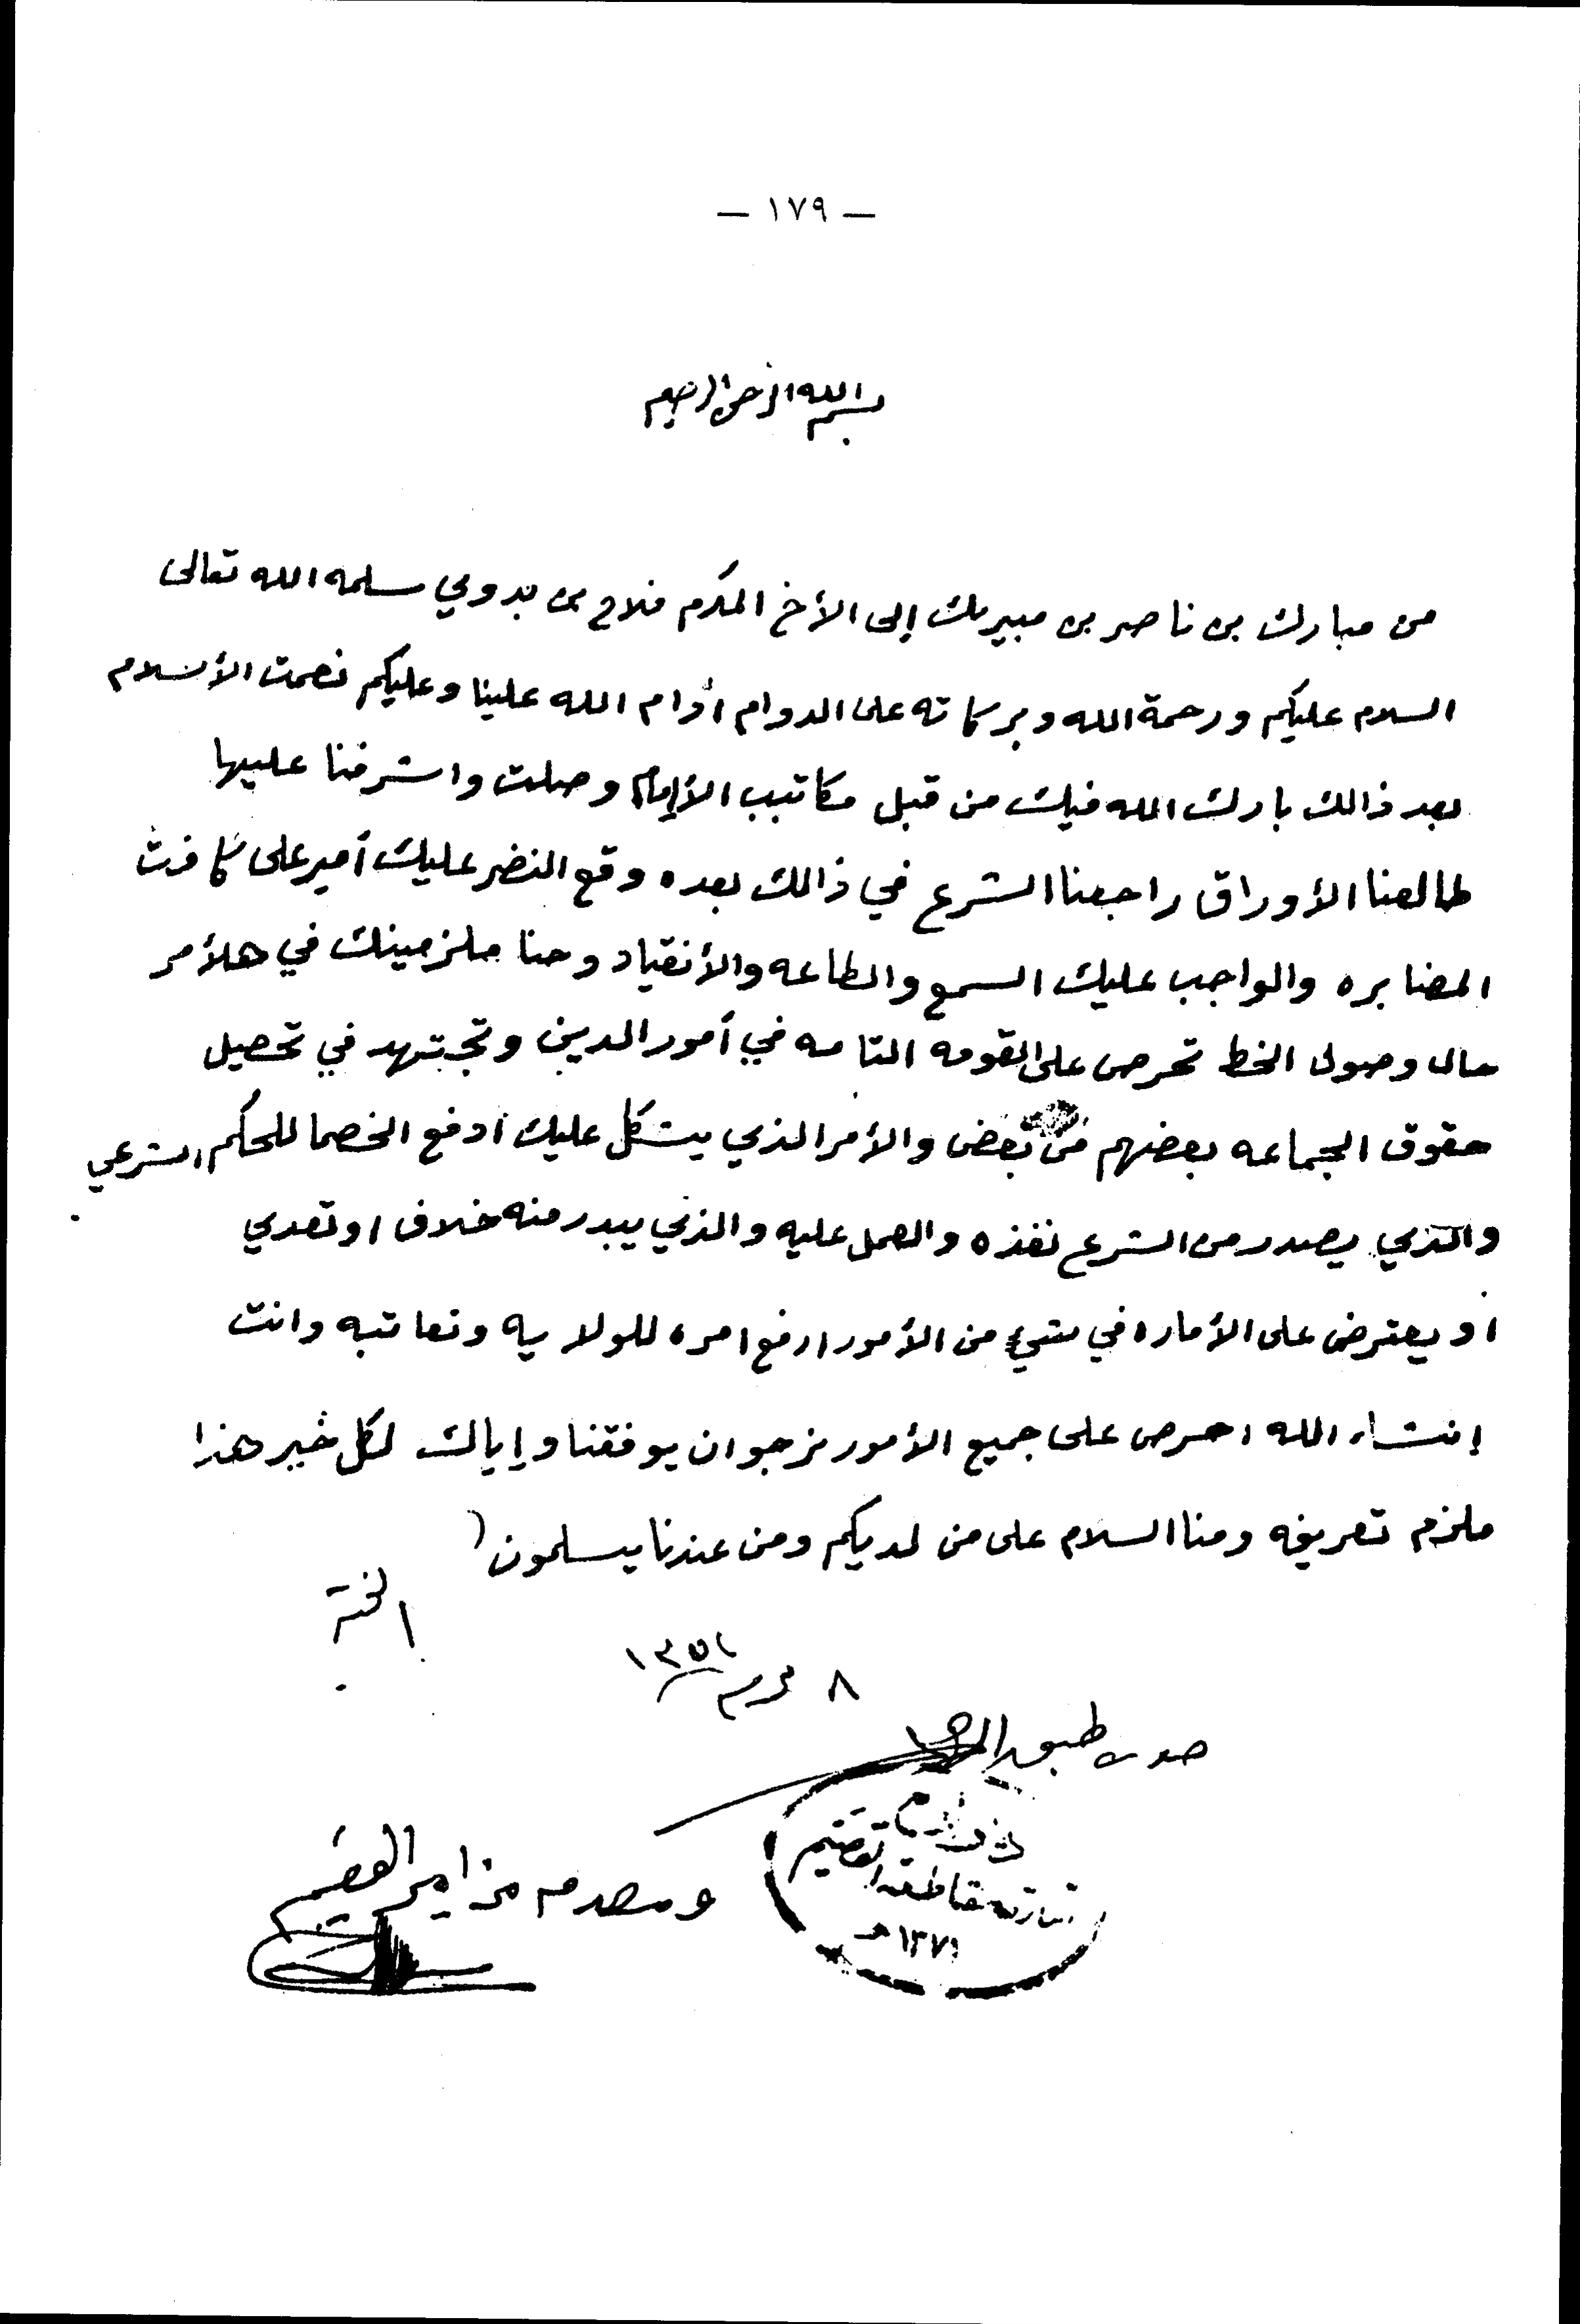 — ١٧٩ —
بسم الله الرحمن الرحيم
من مبارك بن ناصر بن مبيريك إلى الأخ المكرم فلاح بن بدوي سلمه الله تعالى
السلام عليكم ورحمة الله وبركاته على الدوام أدام الله علينا وعليكم نعمت الأسلام
بعد ذالك بارك الله فيك من قبل مكاتيب الأإمام وصلت واشرفنا عليها
طالعنا الأوراق راجعنا الشرع في ذالك بعده وقع النضر عليك أمير على كافت
المضابره والواجب عليك السمع والطاعه والأنقياد وحنا ملزمينك في هلأمر
حال وصول الخط تحرص على القومه التامه في أمور الدين وتجتهد في تحصيل
حقوق الجماعه بعضهم من بعض والأمر الذي يشكل عليك ادفع الخصما للحكم الشرعي
والذي يصدر من الشرع نفذه والعمل عليه والذي يبدر منه خلاف او تعدي
او يعترض على الأماره في شيء من الأمور ارفع امره للولايه ونعاتبه وانت
إنشاء الله احرص على جميع الأمور نرجوا ان يوفقنا وإياك لكل خير هذا
ملزم تعريفه ومنا السلام على من لديكم ومن عندنا يسلمون
الختم
٨ محرم ١٣٥٢
صورة طبق
القصيم
١٣٧١هـ
ومصدقه من امير القصيم